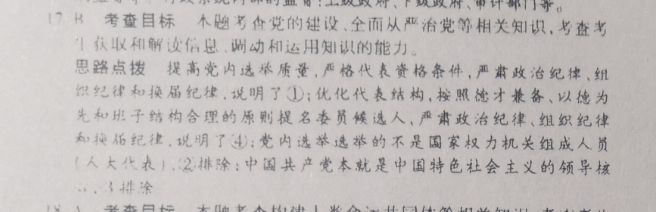 系统内部的监督:上级政府、下级政府、审计部门等。
17 B 考查目标 本题考查党的建设、全面从严治党等相关知识,考查考
生获取和解读信息、调动和运用知识的能力。
思路点拨 提高党内选举质量,严格代表资格条件,严肃政治纪律、组
织纪律和换届纪律,说明了①;优化代表结构,按照德才兼备、以德为
先和班子结构合理的原则提名委员候选人,严肃政治纪律、组织纪律
和换届纪律,说明了④;党内选举选举的不是国家权力机关组成人员
(人大代表),②排除;中国共产党本就是中国特色社会主义的领导核
心,3排除
18 A 考查目标 本题考查构建人类命运共同体等相关知识,考查考生